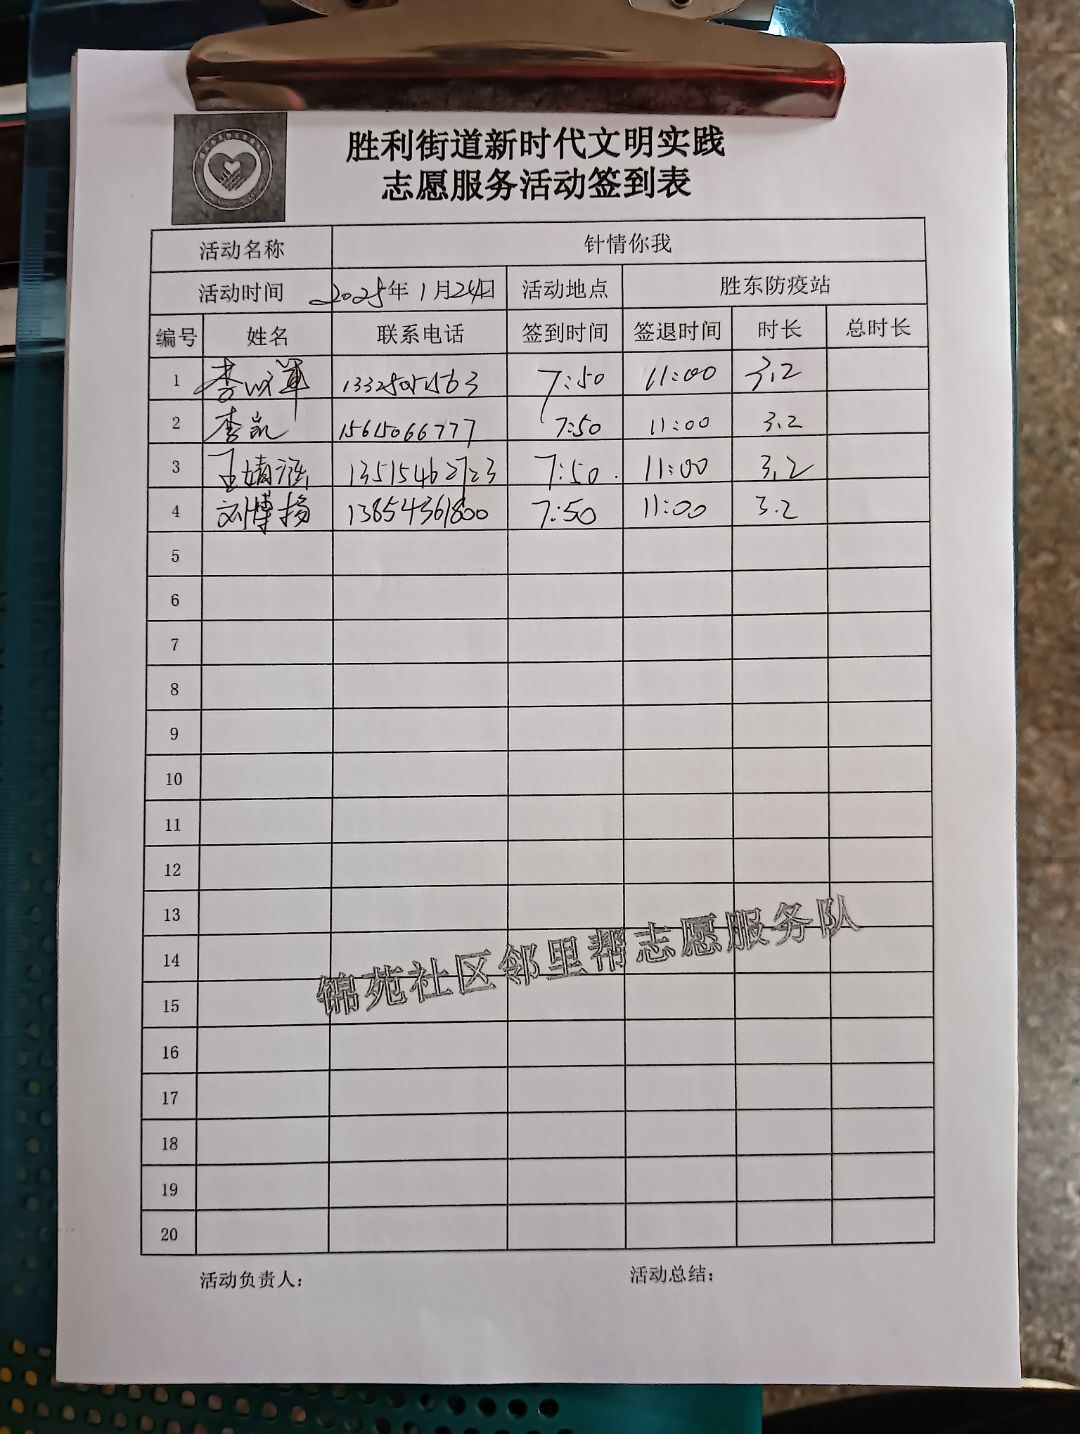 胜利街道新时代文明实践
志愿服务活动签到表
活动名称 针情你我
活动时间 2025年1月24日 活动地点 胜东防疫站
编号 姓名 联系电话 签到时间 签退时间 时长 总时长
1 7:50 11:00 3.2
2 李凯 15615066777 7:50 11:00 3.2
3 13515462723 7:50 11:00 3.2
4 刘博扬 13854361800 7:50 11:00 3.2
5
6
7
8
9
10
11
12
13
14
15
16
17
18
19
20
锦苑社区邻里帮志愿服务队
活动负责人： 活动总结：